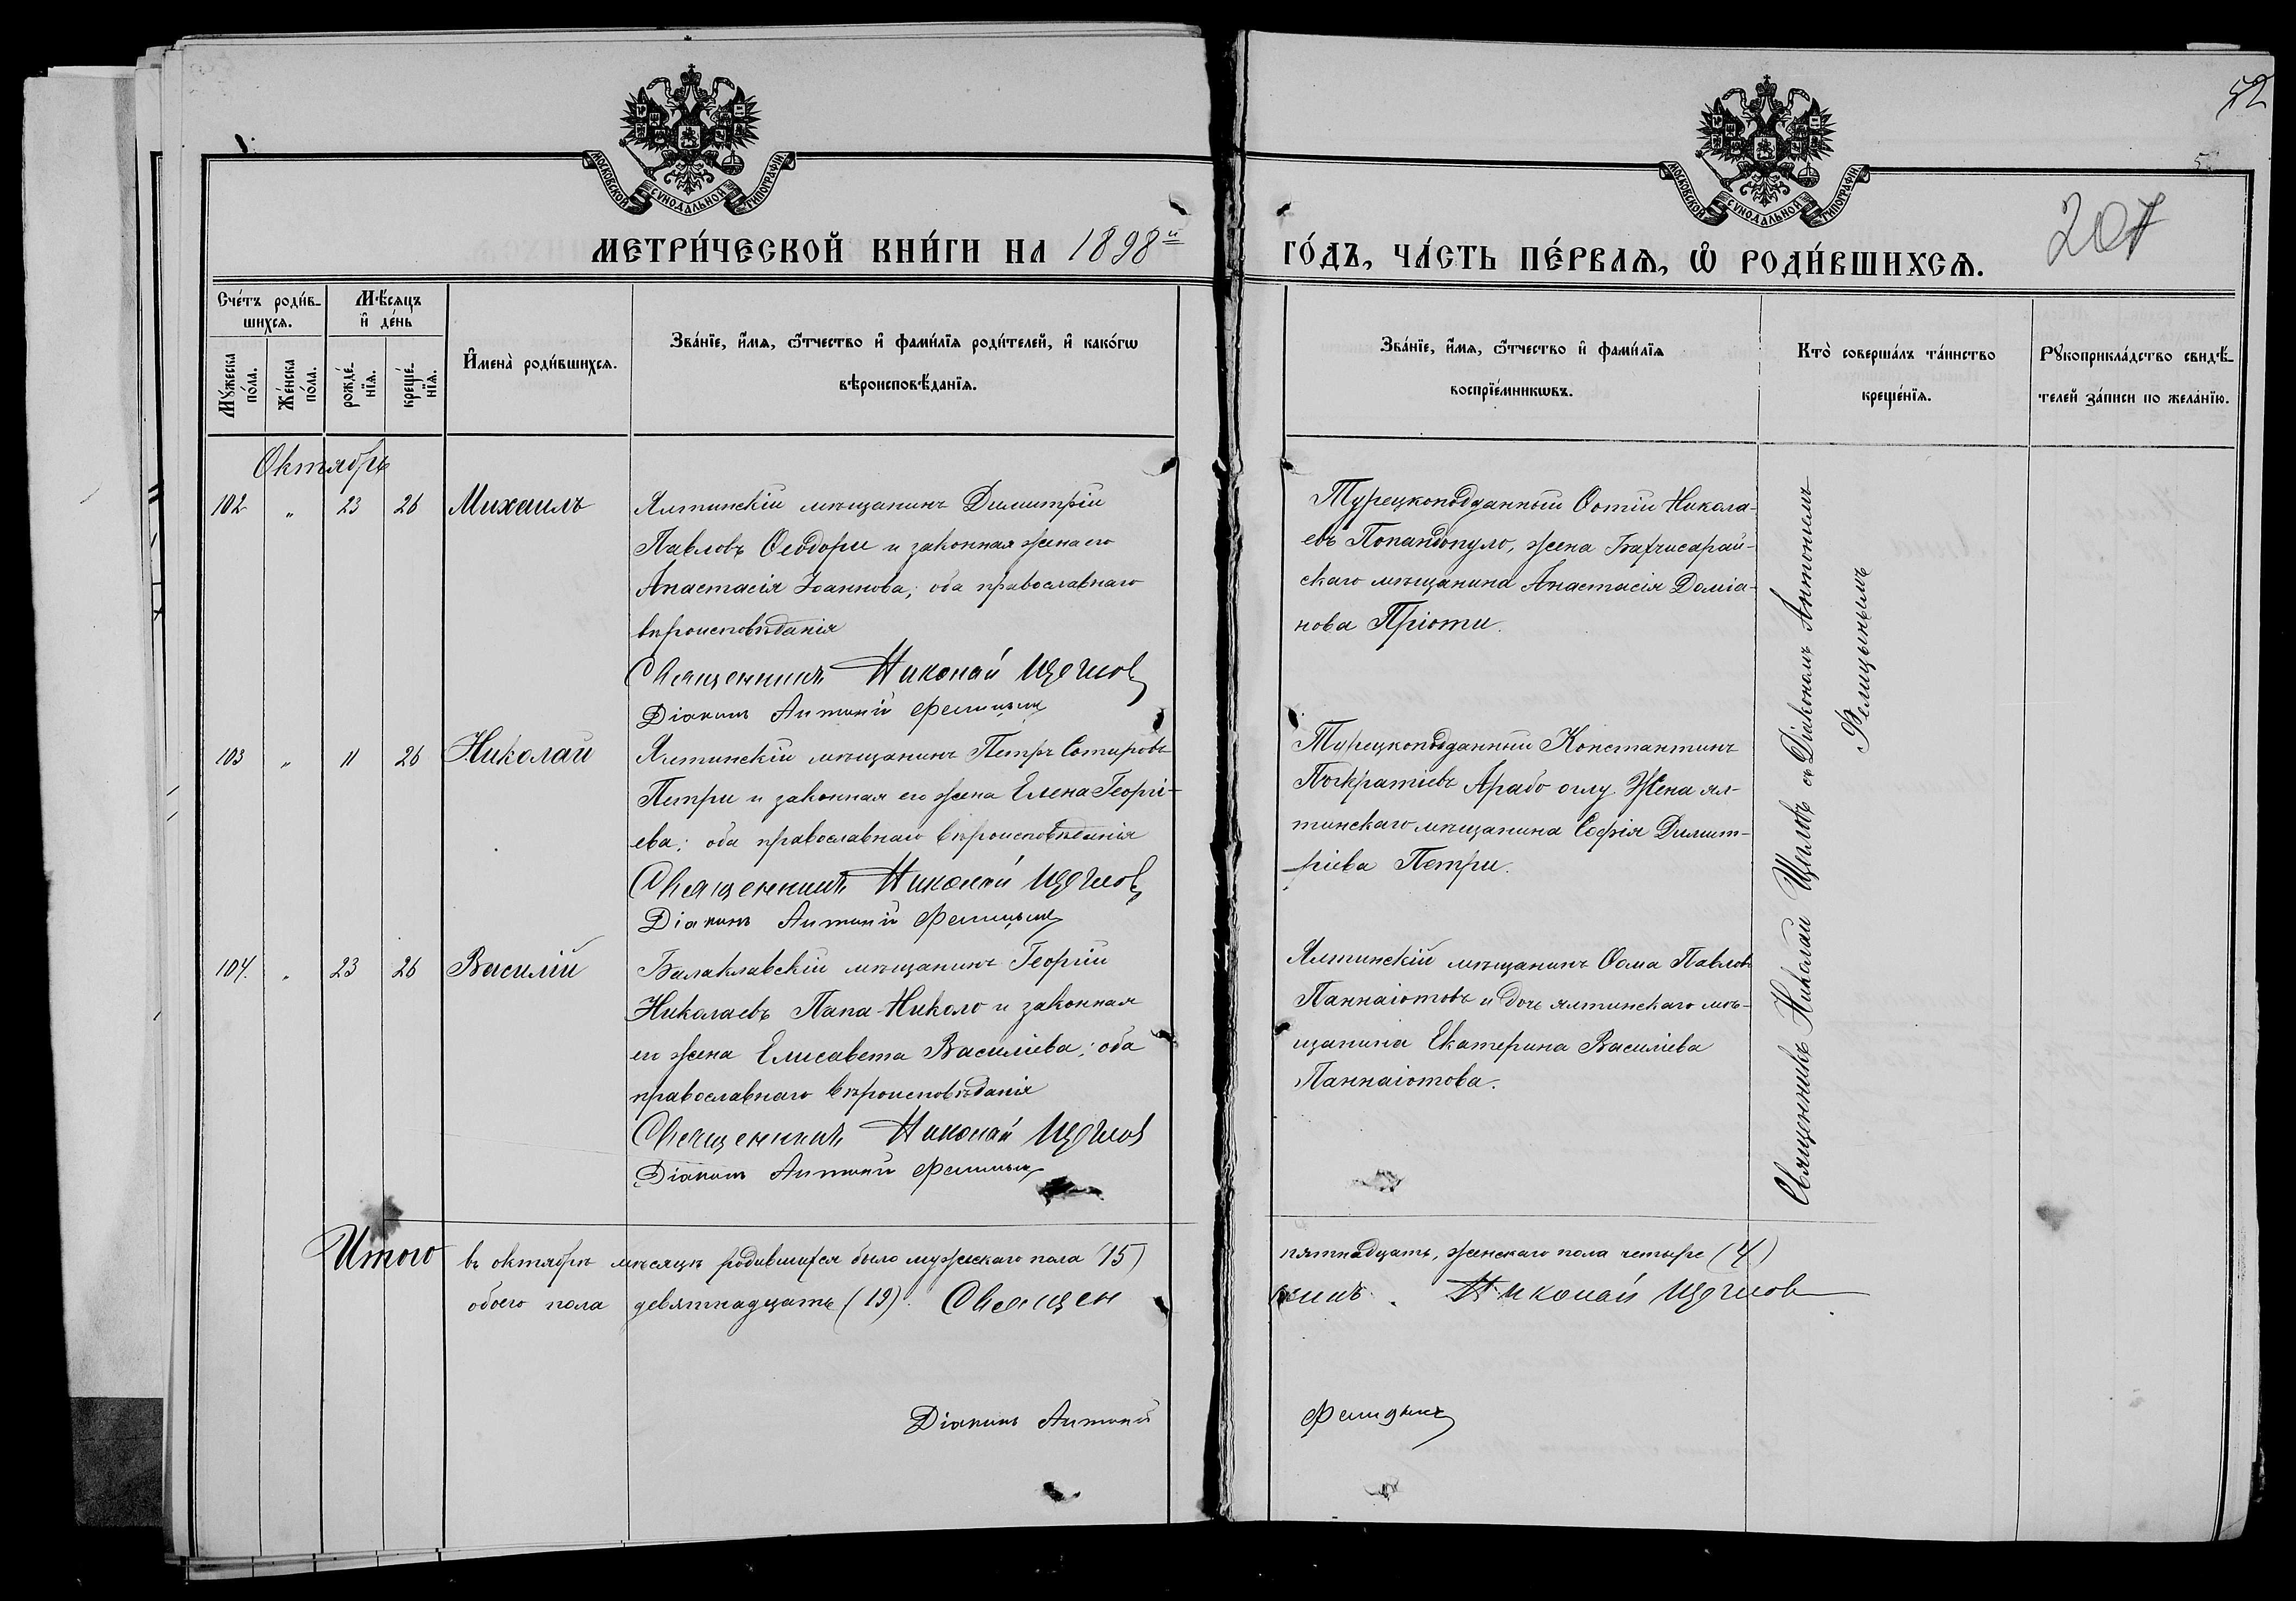 52
МОСКОВСКОЙ СУНОДАЛЬНОЙ ТИПОГРАФІИ
МОСКОВСКОЙ СУНОДАЛЬНОЙ ТИПОГРАФІИ
207
МЕТРИ́ЧЕСКОЙ КНИ́ГИ НА 1898й
ГО́ДЪ, ЧА́СТЬ ПЕ́РВАѦ, Ѡ҆ РОДИ́ВШИХСѦ.
Сче́тъ роди́в-
шихсѧ.
Мꙋ́жеска по́ла.
Же́нска по́ла.
Мѣ́сѧцъ
и҆ де́нь
рожде́нїѧ.
креще́нїѧ.
И҆мена̀ роди́вшихсѧ.
Зва́нїе, и҆́мѧ, ѻ҆́тчество и҆ фами́лїѧ роди́телей, и҆ како́гѡ
вѣроисповѣ́данїѧ.
Зва́нїе, и҆́мѧ, ѻ҆́тчество и҆ фами́лїѧ
воспрїе́мникѡвъ.
Кто̀ соверша́лъ та́инство
креще́нїѧ.
Рꙋкоприкла́дство свидѣ́-
телей за́писи по жела́нїю.
Октябрь
102 " 23 26 Михаилъ
Ялтинскій мѣщанинъ Димитрій
Павловъ Ѳеодори и законная жена его
Анастасія Іоаннова; оба православнаго
вѣроисповѣданія
Священникъ Николай Щегловъ
Діаконъ Антоній Фелицынъ
Турецкоподданный Ѳотій Никола-
евъ Попандопуло, жена Бахчисарай-
скаго мѣщанина Анастасія Доміа-
нова Пріоти.
103 " 11 26 Николай
Ялтинскій мѣщанинъ Петръ Сотировъ
Петри и законная его жена Елена Георгі-
ева; оба православнаго вѣроисповѣданія
Священникъ Николай Щегловъ
Діаконъ Антоній Фелицынъ
Турецкоподданный Константинъ
Арабо оглу. Жена ял-
тинскаго мѣщанина Софія Димит-
ріева Петри.
104. " 23 26 Василій
Балаклавскій мѣщанинъ Георгій
Николаевъ Папа-Николо и законная
его жена Елисавета Василіева; оба
православнаго вѣроисповѣданія
Священникъ Николай Щегловъ
Діаконъ Антоній Фелицынъ
Ялтинскій мѣщанинъ Ѳома Павловъ
Паннаіотовъ и дочь ялтинскаго мѣ-
щанина Екатерина Василіева
Паннаіотова.
Священникъ Николай Щегловъ съ Діакономъ Антоніемъ
Фелицынымъ
Итого въ октябрѣ мѣсяцѣ родившихся было мужескаго пола 15) пятнадцать, женскаго пола четыре (4)
обоего пола девятнадцать (19). Священникъ. Николай Щегловъ
Діаконъ Антоній Фелицынъ